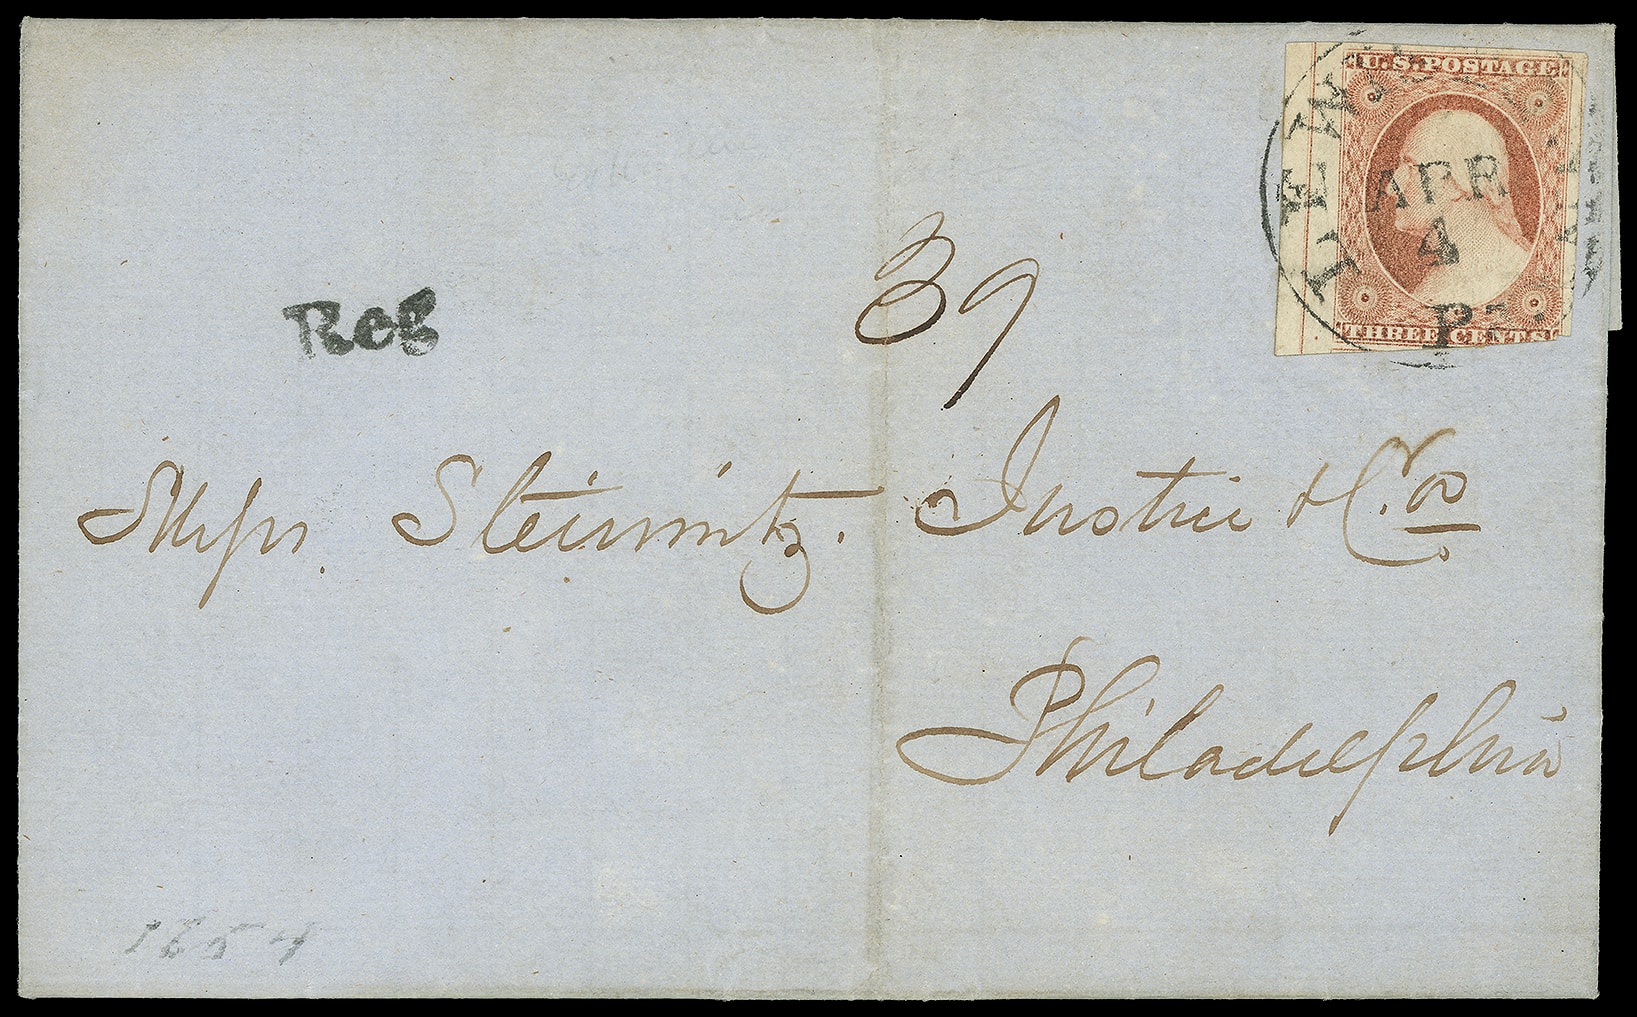 U.S. POSTAGE
THREE CENTS
LEWIS
APR
4
Pa.
39
Reg
Mess Steinmitz. Justice & Co.
Philadelphia
1854